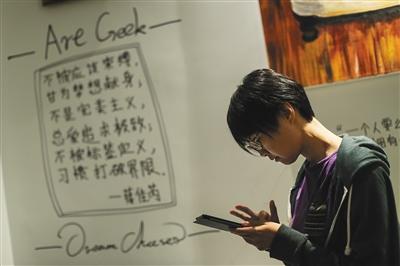 Are Geek
不被应该束缚,
甘为梦想献身,
不是完美主义,
求极致;
不被标签定义,
习惯打破界限.
Dream Chasers
“一个人要么
拥有